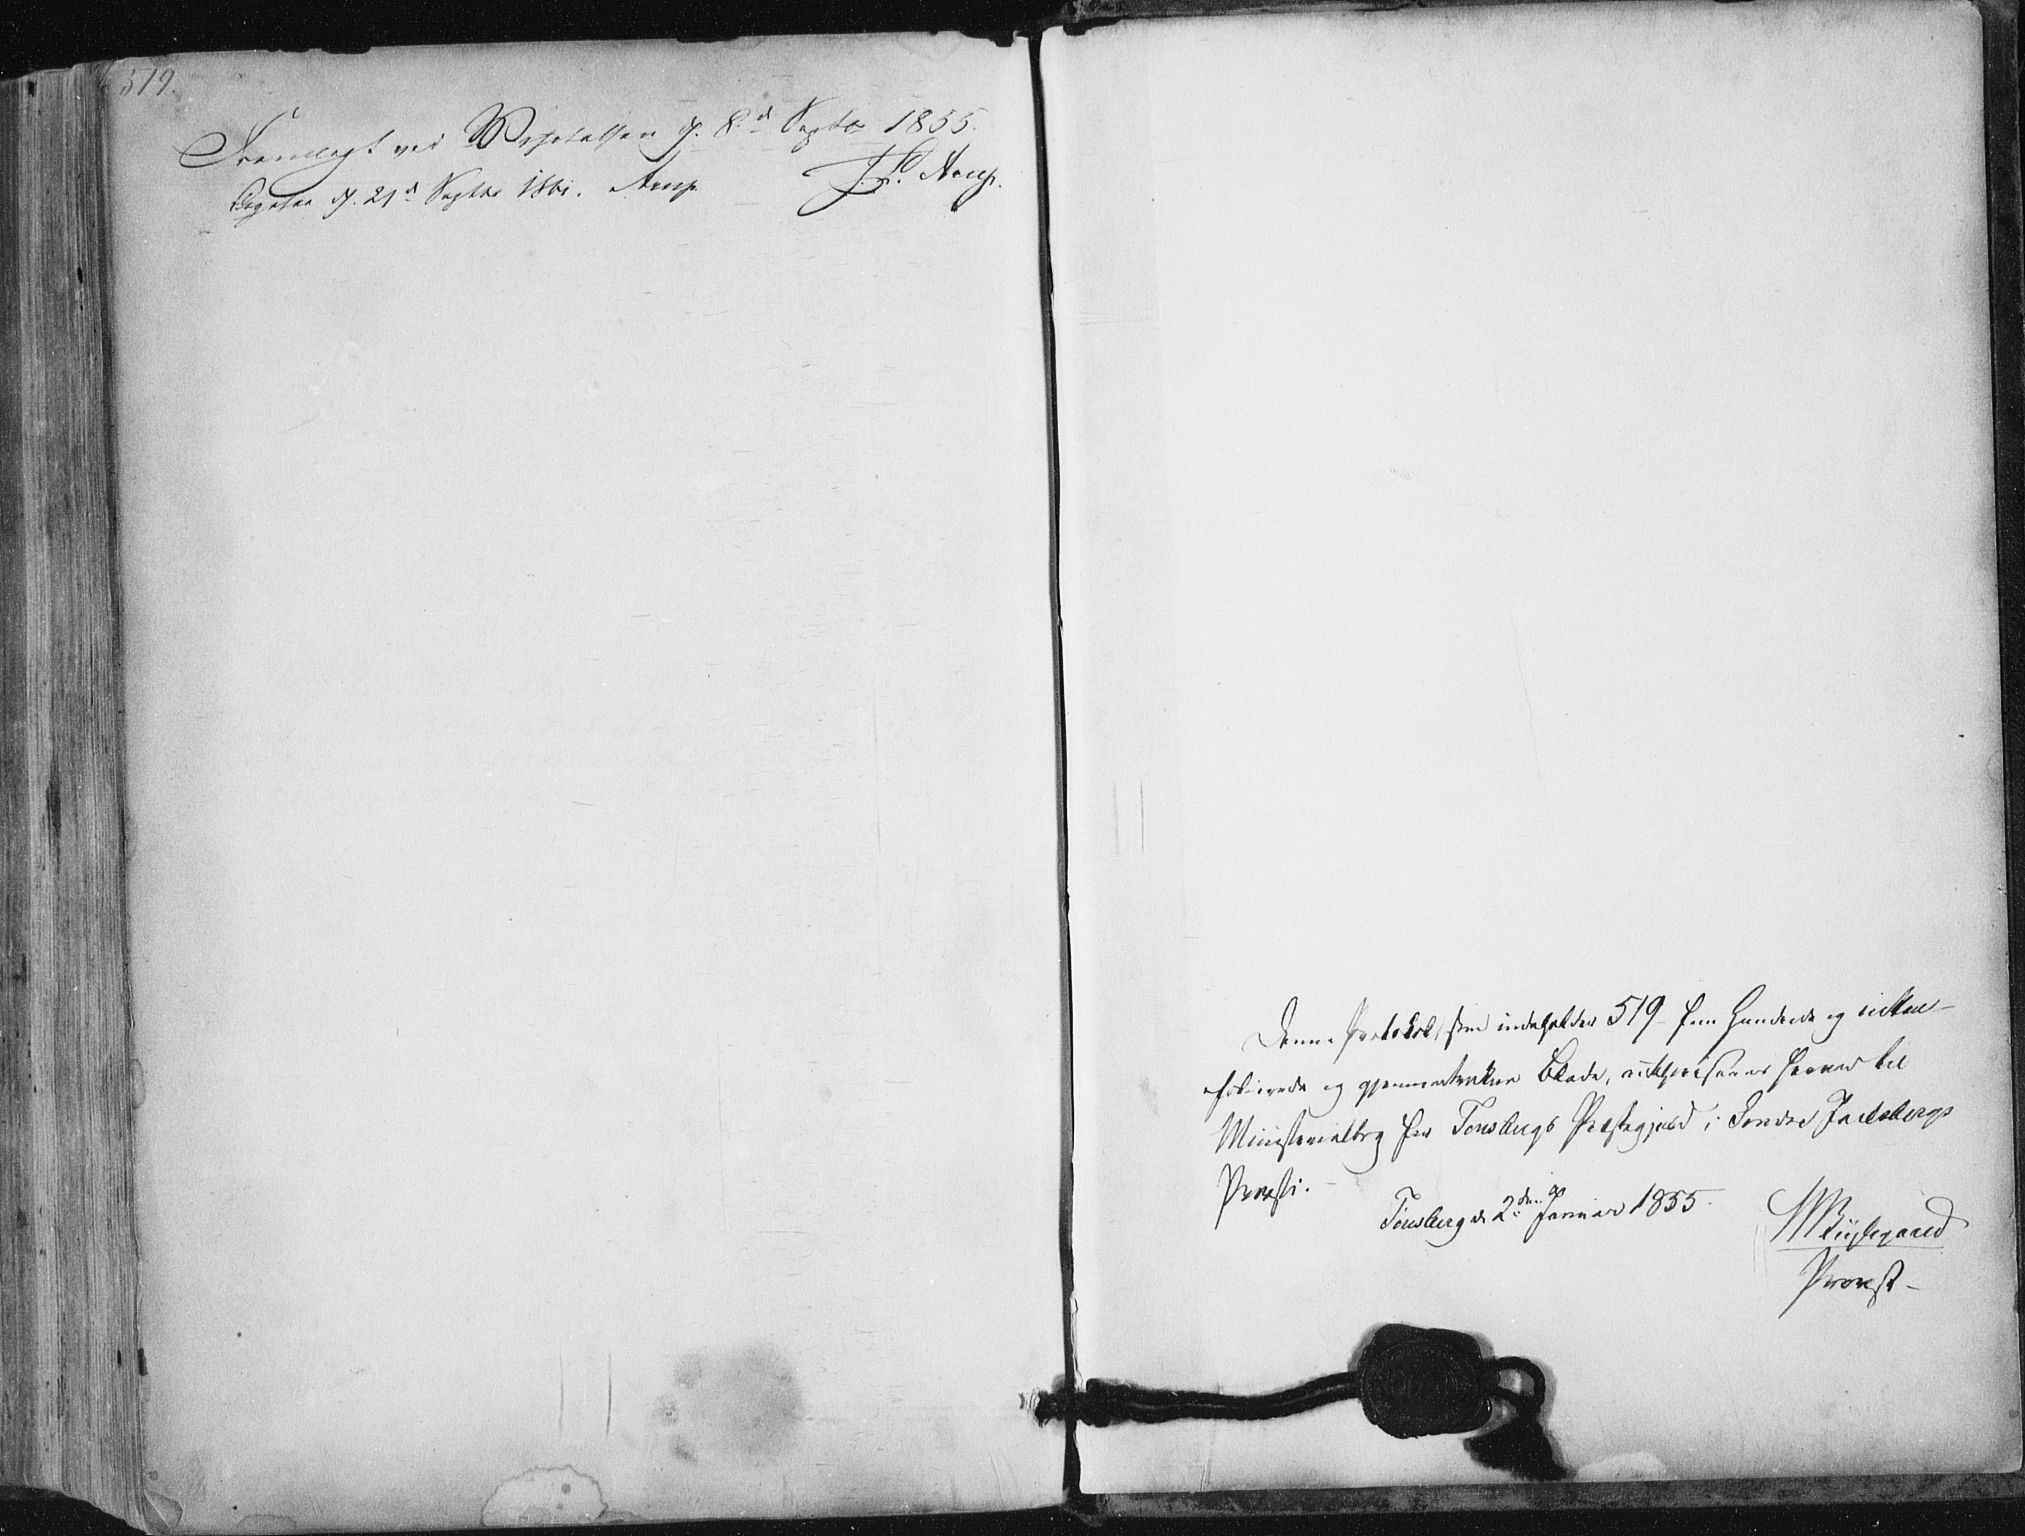 519.
Fremlagt ved Visitatsen d. 8.d Septbr 1855.
J. L. Arup.
Ligesaa d. 21d Septbr 1861. Arup.
Denne Protokol, som indeholder 519 fem Hundrede og nitten
folierede og gjennemtrukne Blade, autoriseres herved til
Ministerialbog for Tønsbergs Præstegjæld i Søndre Jarlsbergs
Provsti.
Tønsberg d. 2den Januar 1855.
Provst